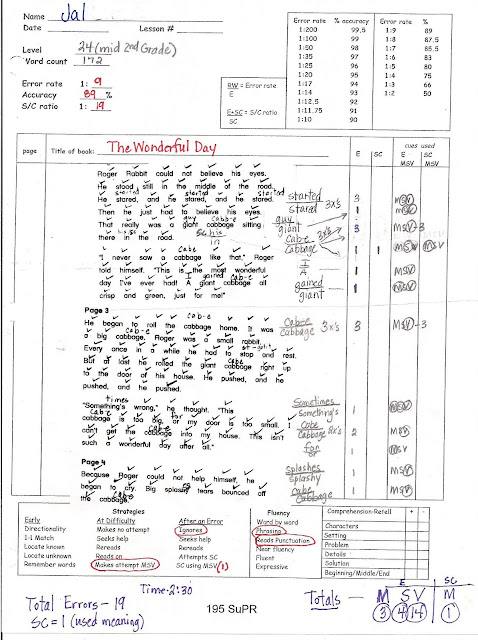 Name Jal
Date Lesson #
Level 24 (mid 2nd Grade)
Word count 172
Error rate 1: 9
Accuracy 89 %
S/C ratio 1: 19
RW = Error rate
E
E+SC = S/C ratio
SC
Error rate % accuracy Error rate %
1:200 99.5 1:9 89
1:100 99 1:8 87.5
1:50 98 1:7 85.5
1:35 97 1:6 83
1:25 96 1:5 80
1:20 95 1:4 75
1:17 94 1:3 66
1:14 93 1:2 50
1:12.5 92
1:11.75 91
1:10 90
page Title of book: The Wonderful Day E SC cues used
E MSV SC MSV
Roger Rabbit could not believe his eyes.
He stood still in the middle of the road.
started started started
He stared, and he stared, and he stared.
started 3x's 3 MSV
stared
Then he just had to believe his eyes.
1 MSV
guy cabb-e
That really was a giant cabbage sitting
guy
giant 3 MSV-3
there in the road.
in
Cab-e 3x's
Cabbage
cabe
"I never saw a cabbage like that," Roger
1 1 MSV MSV
told himself. "This is the most wonderful
I
A 1 MSV
I gained cab-e
day I've ever had! A giant cabbage all
gained
giant 1 MSV
crisp and green, just for me!"
Page 3
cab-e
He began to roll the cabbage home. It was
Cab-e
Cabbage 3x's 3 MSV-3
cab-e
a big cabbage. Roger was a small rabbit.
Every once in a while he had to stop and rest.
cabe
But at last he rolled the giant cabbage right up
to the door of his house. He pushed, and he
pushed, and he pushed.
times
"Something's wrong," he thought. "This
Sometimes
Something's 1 MSV
Cabe
cabbage is too big, for my door is too small. I
can't get the cabbage into my house. This isn't
Cabe
Cabbage 2 MSV
such a wonderful day after all."
for 1 MSV
Page 4
Because Roger could not help himself, he
Splashes
Splashy 1 MSV
began to cry. Big splashy tears bounced off
cabe
the cabbage.
Cabe
Cabbage 1 MSV
Strategies
Early At Difficulty After an Error
Directionality Makes no attempt Ignores
1-1 Match Seeks help Seeks help
Locate known Rereads Rereads
Locate unknown Reads on Attempts SC
Remember words Makes attempt MSV SC using MSV (1)
Fluency
Word by word
Phrasing
Reads Punctuation
Near fluency
Fluent
Expressive
Comprehension-Retell + -
Characters
Setting
Problem
Details
Solution
Beginning/Middle/End
Time-2:30
Total Errors - 19
SC = 1 (used meaning)
195 SuPR
Totals - E SC
M S V M
3 4 14 1